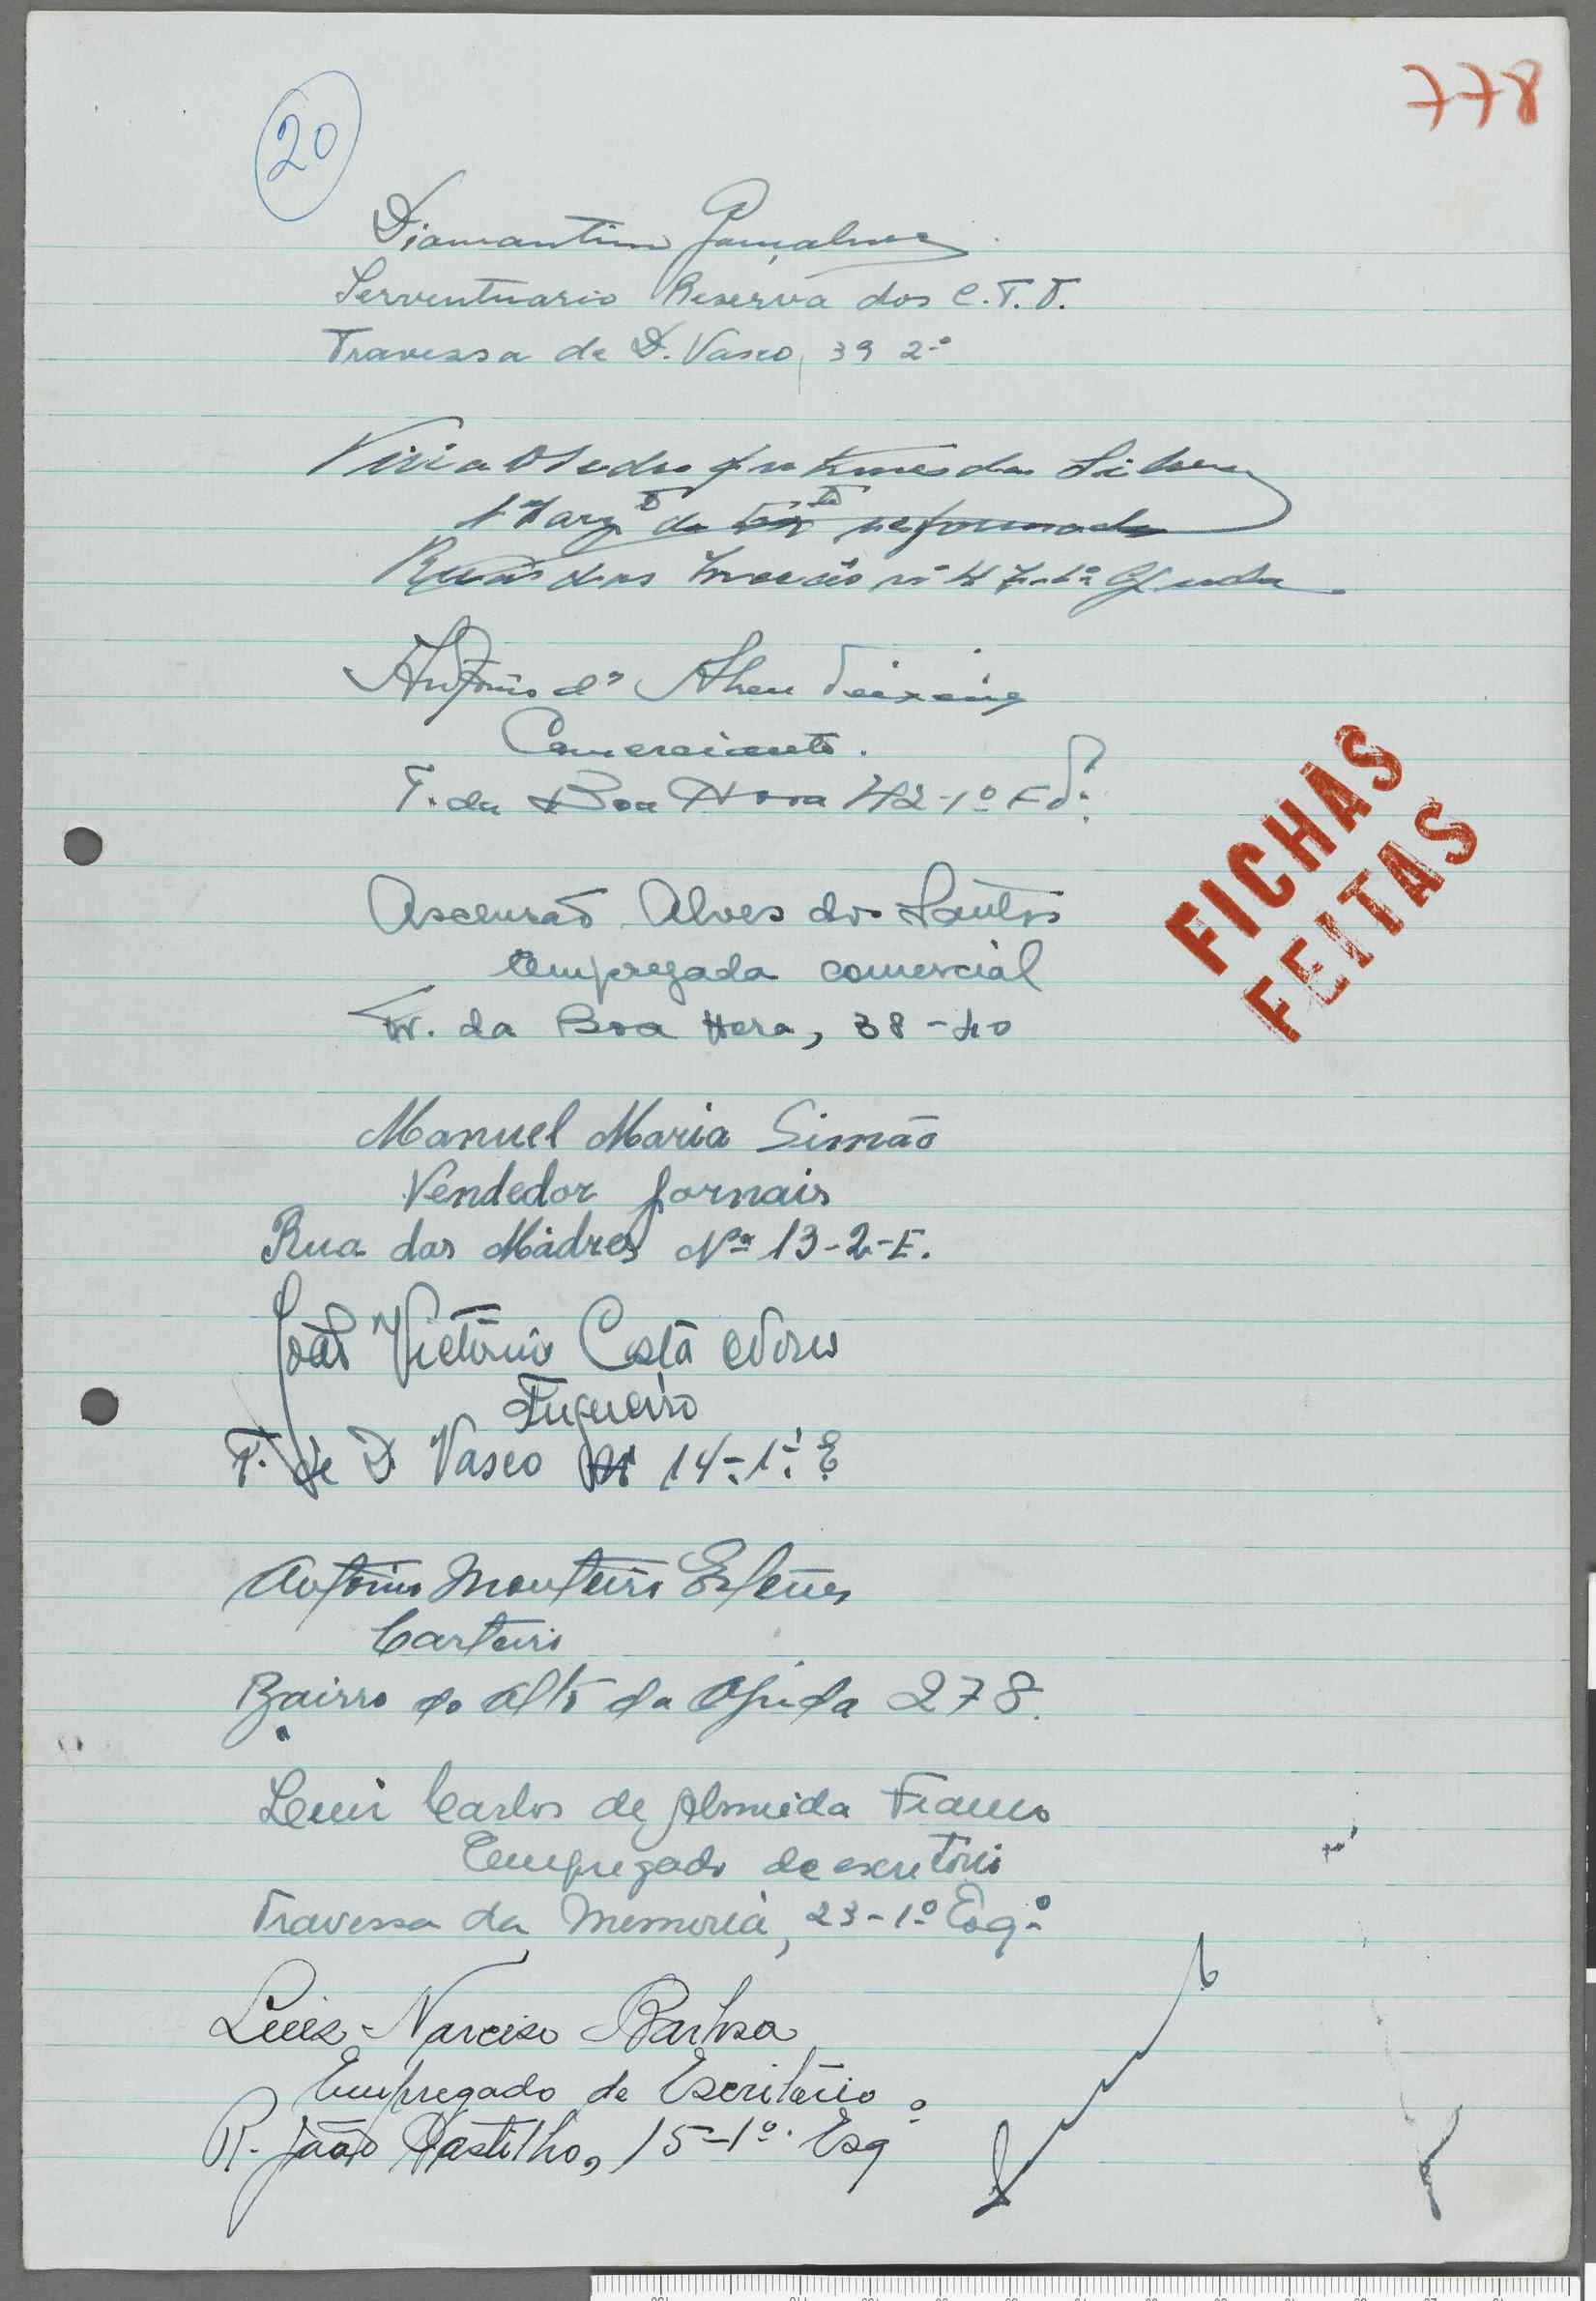 778
20
Diamantino Gonçalves
Serventuario Reserva dos C.T.T.
Travessa de D. Vasco, 39 2º
da Silva
reformado
Rua das nº 47-1º Ajuda
António d' Abreu Teixeira
Comerciante.
T. da Boa Hora 42-1º
FICHAS
FEITAS
Ascensão Alves dos Santos
Empregada comercial
Tr. da Boa Hora, 38-40
Manuel Maria Simão
Vendedor Jornais
Rua das Madres Nº 13-2-E.
João Victorino Costa Neves
Fugueiro
T. de D Vasco 14-1º E
António Monteiro Esteves
Carteiro
Bairro do Alto da Ajuda 278.
Luis Carlos de Almeida Franco
Empregado de escritório
Travessa da Memória, 23-1º Esqº
Luis Narciso Barbosa
Empregado de Escritório
R. João Castilho, 15-1º. Esqº